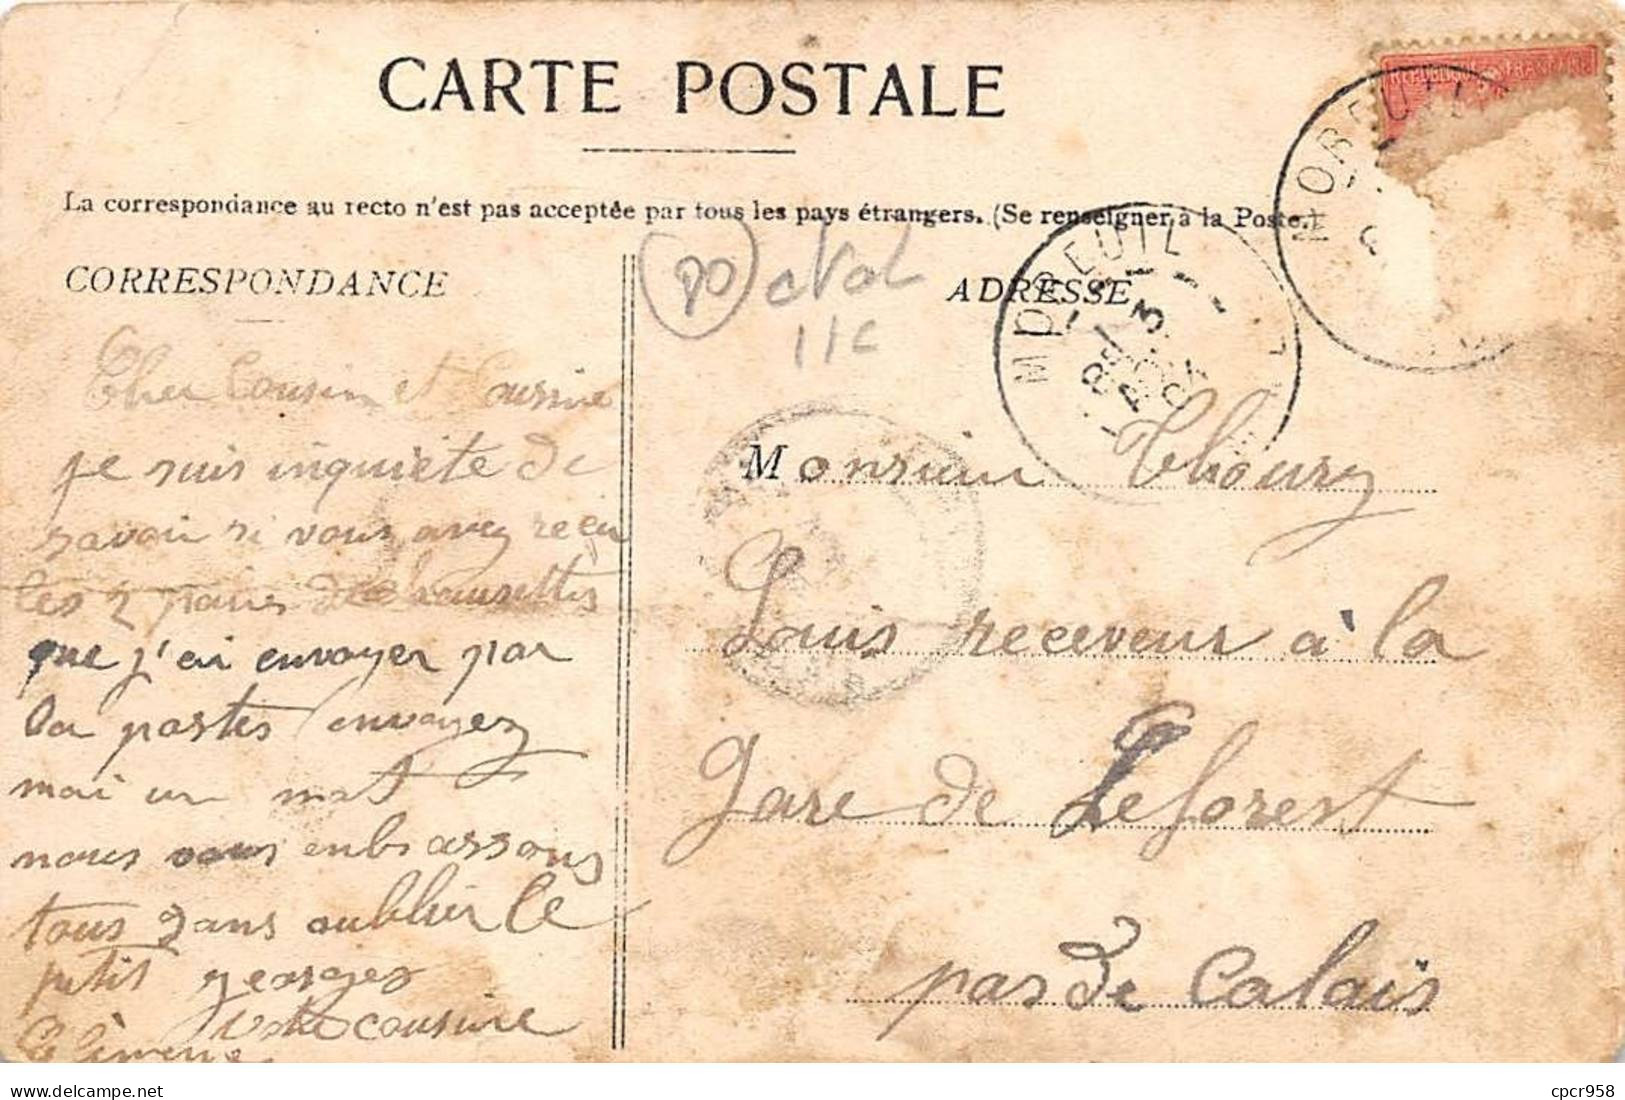 CARTE POSTALE
La correspondance au recto n'est pas acceptée par tous les pays étrangers. (Se renseigner à la Poste.)
CORRESPONDANCE
ADRESSE
80
11C
REPUBLIQUE FRANCAISE
MOREUIL
MOREUIL
3
04
Cher Cousin et Cousine
je suis inquiete de
savoir si vous avez recu
les 2 paires de chaussettes
que j'ai envoyer par
la postes envoyez
moi un mot
nous vous embrassons
tous sans oublier le
petit georges
votre cousine
Clémence
Monsieur Thoury
Louis receveur à la
gare de Leforest
pas de Calais
cpcr958